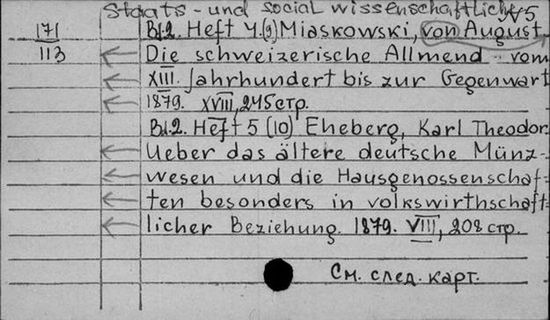 Staats- und social wissenschaftliche № 5
171 Bd.2. Heft 4.(9) Miaskowski, von August.
113 Die schweizerische Allmend vom
XIII. Jahrhundert bis zur Gegenwart
1879. XVIII, 245 стр.
Bd.2. Heft 5 (10) Eheberg, Karl Theodor.
Ueber das ältere deutsche Münz-
wesen und die Hausgenossenschaf-
ten besonders in volkswirthschaft-
licher Beziehung. 1879. VIII, 208 стр.
См. след. карт.